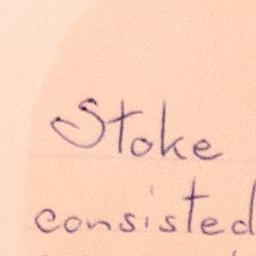 Stoke
consisted